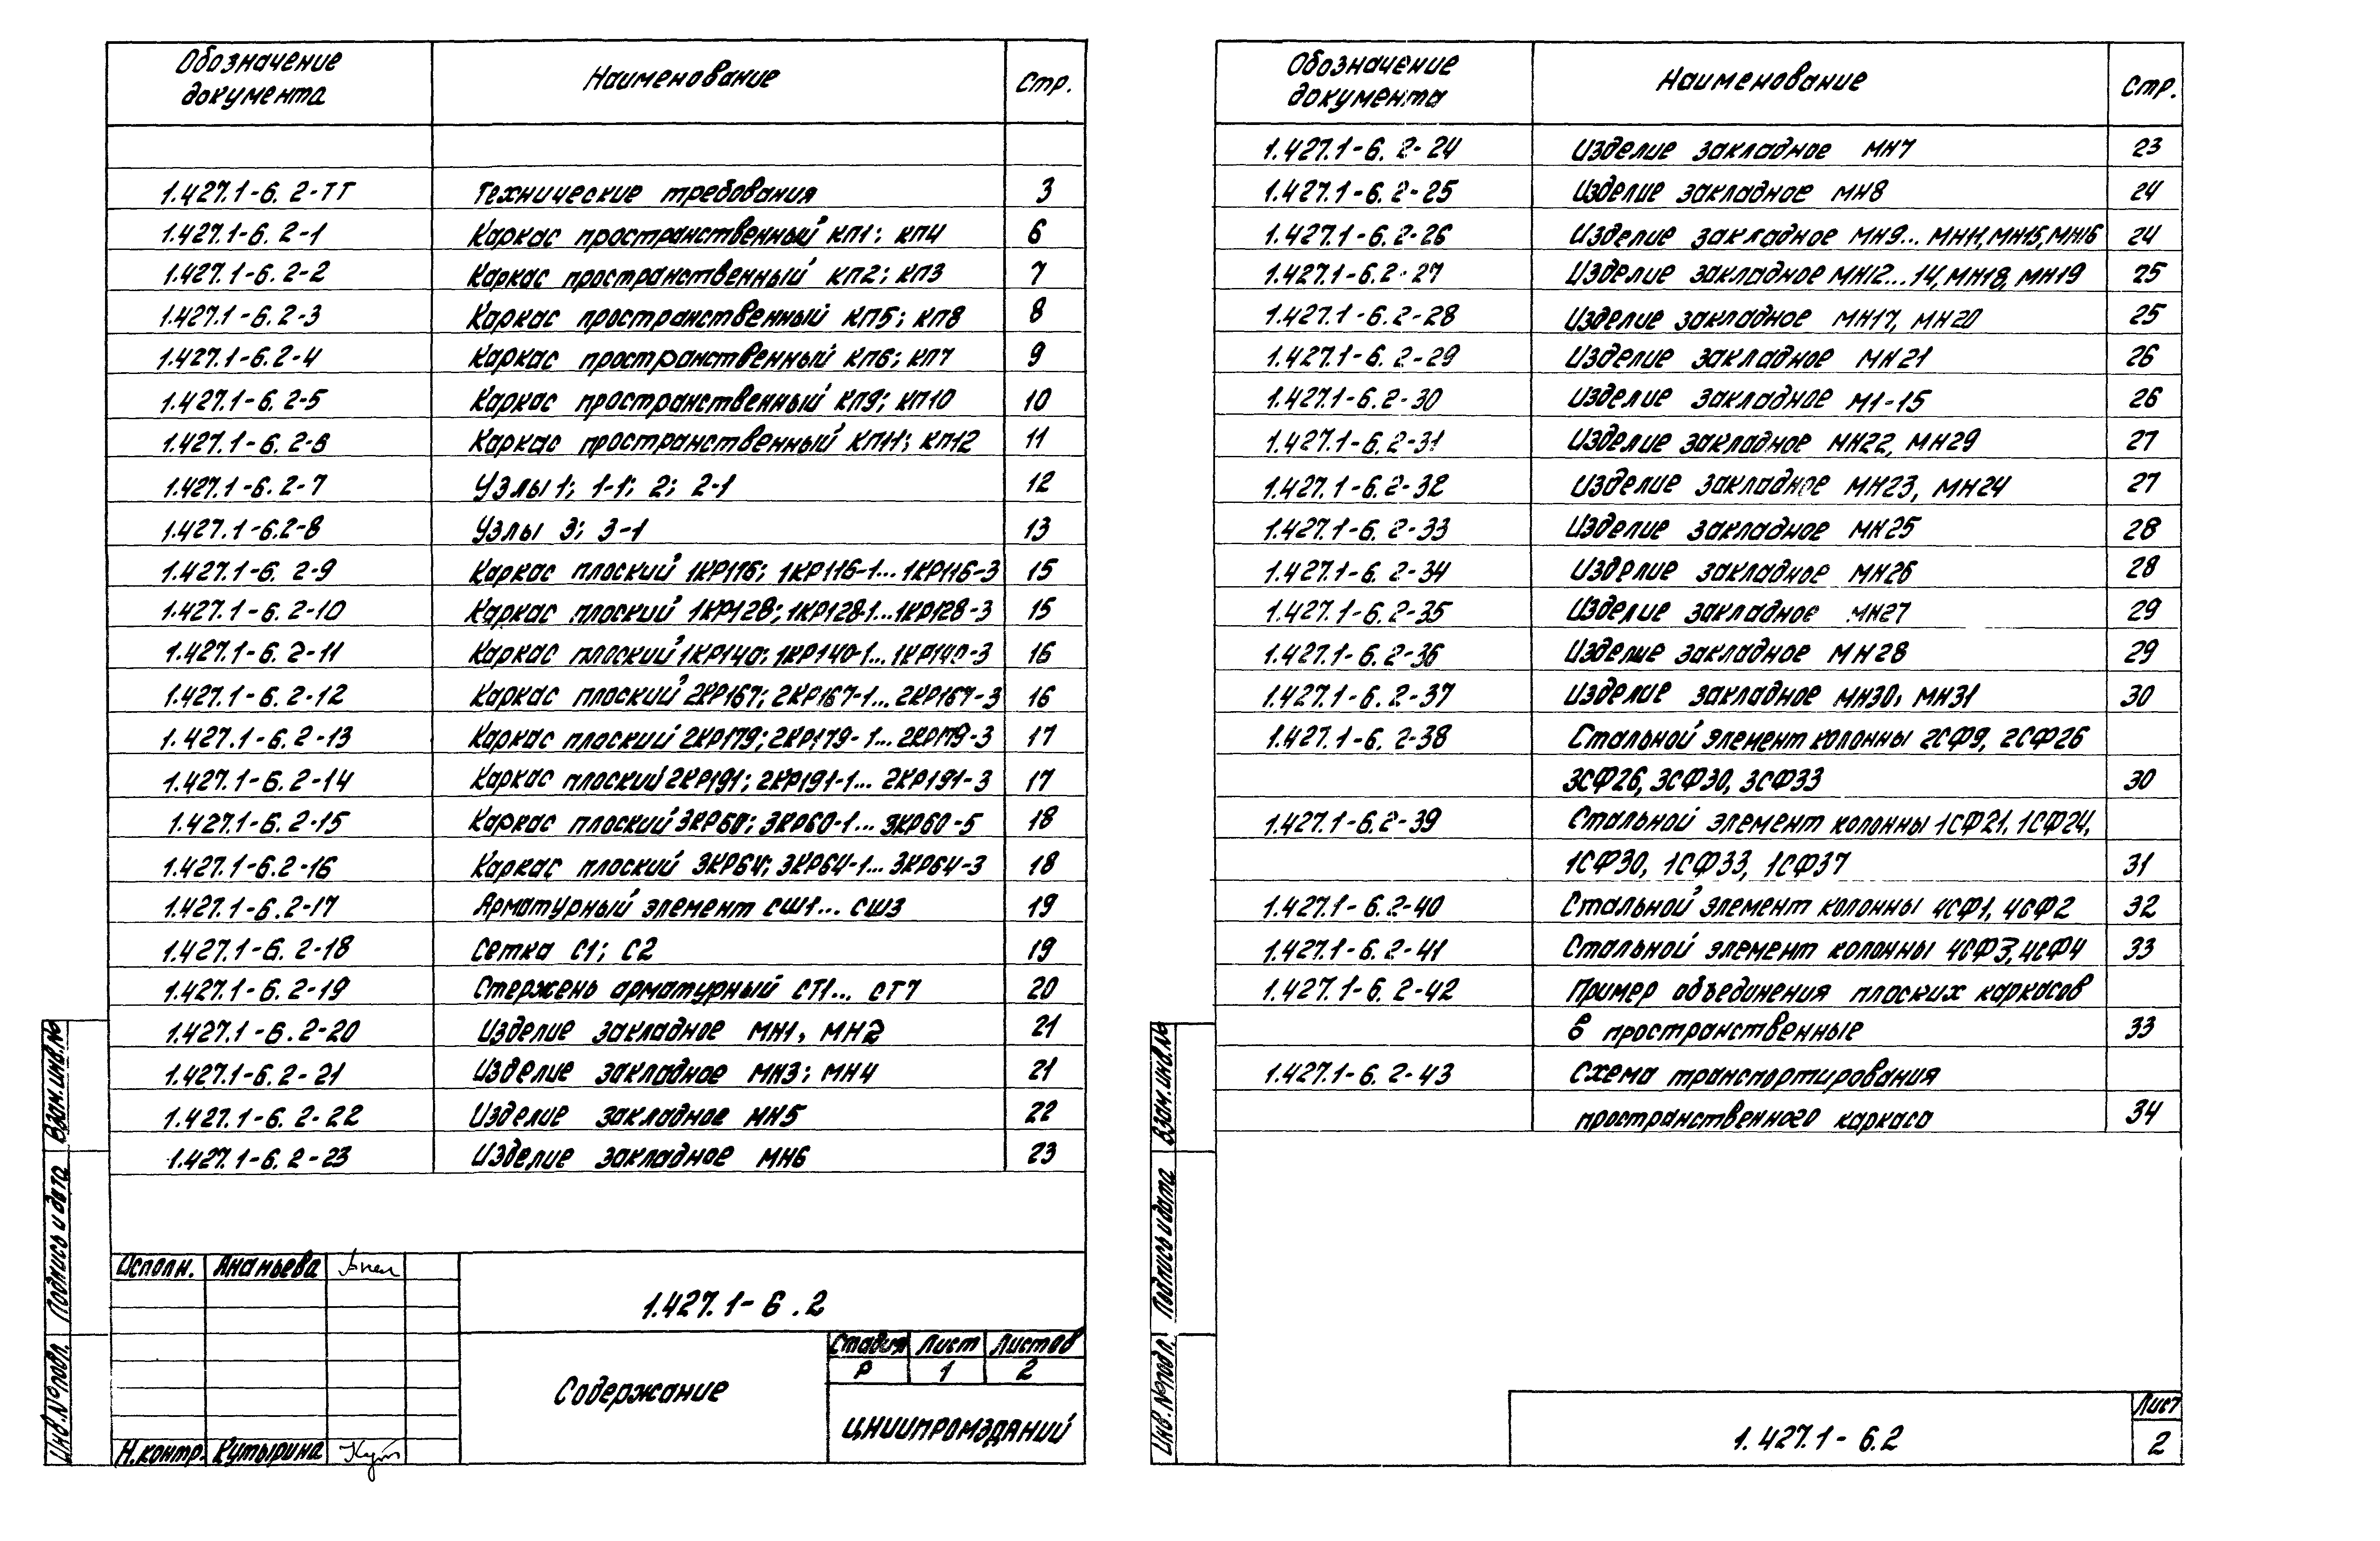 Обозначение документа Наименование Стр.
1.427.1-6.2-ТТ Технические требования 3
1.427.1-6.2-1 Каркас пространственный КП1; КП4 6
1.427.1-6.2-2 Каркас пространственный КП2; КП3 7
1.427.1-6.2-3 Каркас пространственный КП5; КП8 8
1.427.1-6.2-4 Каркас пространственный КП6; КП7 9
1.427.1-6.2-5 Каркас пространственный КП9; КП10 10
1.427.1-6.2-6 Каркас пространственный КП11; КП12 11
1.427.1-6.2-7 Узлы 1; 1-1; 2; 2-1 12
1.427.1-6.2-8 Узлы 3; 3-1 13
1.427.1-6.2-9 Каркас плоский 1КР116; 1КР116-1... 1КР116-3 15
1.427.1-6.2-10 Каркас плоский 1КР128; 1КР128-1... 1КР128-3 15
1.427.1-6.2-11 Каркас плоский 1КР140; 1КР140-1... 1КР140-3 16
1.427.1-6.2-12 Каркас плоский 2КР167; 2КР167-1... 2КР167-3 16
1.427.1-6.2-13 Каркас плоский 2КР179; 2КР179-1... 2КР179-3 17
1.427.1-6.2-14 Каркас плоский 2КР191; 2КР191-1... 2КР191-3 17
1.427.1-6.2-15 Каркас плоский 3КР60; 3КР60-1... 3КР60-5 18
1.427.1-6.2-16 Каркас плоский 3КР64; 3КР64-1... 3КР64-3 18
1.427.1-6.2-17 Арматурный элемент СШ1... СШ3 19
1.427.1-6.2-18 Сетка С1; С2 19
1.427.1-6.2-19 Стержень арматурный СТ1... СТ7 20
1.427.1-6.2-20 Изделие закладное МН1, МН2 21
1.427.1-6.2-21 Изделие закладное МН3; МН4 21
1.427.1-6.2-22 Изделие закладное МН5 22
1.427.1-6.2-23 Изделие закладное МН6 23
Исполн. Ананьева
1.427.1-6.2
Содержание
Стадия Лист Листов
Р 1 2
ЦНИИПРОМЗДАНИЙ
Н.контр. Кутырина
Инв.№ подл. Подпись и дата Взам.инв.№
Обозначение документа Наименование Стр.
1.427.1-6.2-24 Изделие закладное МН7 23
1.427.1-6.2-25 Изделие закладное МН8 24
1.427.1-6.2-26 Изделие закладное МН9... МН11, МН15, МН16 24
1.427.1-6.2-27 Изделие закладное МН12... 14, МН18, МН19 25
1.427.1-6.2-28 Изделие закладное МН17, МН20 25
1.427.1-6.2-29 Изделие закладное МН21 26
1.427.1-6.2-30 Изделие закладное М1-15 26
1.427.1-6.2-31 Изделие закладное МН22, МН29 27
1.427.1-6.2-32 Изделие закладное МН23, МН24 27
1.427.1-6.2-33 Изделие закладное МН25 28
1.427.1-6.2-34 Изделие закладное МН26 28
1.427.1-6.2-35 Изделие закладное МН27 29
1.427.1-6.2-36 Изделие закладное МН28 29
1.427.1-6.2-37 Изделие закладное МН30, МН31 30
1.427.1-6.2-38 Стальной элемент колонны 2СФ9, 2СФ26
3СФ26, 3СФ30, 3СФ33 30
1.427.1-6.2-39 Стальной элемент колонны 1СФ21, 1СФ24,
1СФ30, 1СФ33, 1СФ37 31
1.427.1-6.2-40 Стальной элемент колонны 4СФ1, 4СФ2 32
1.427.1-6.2-41 Стальной элемент колонны 4СФ3, 4СФ4 33
1.427.1-6.2-42 Пример объединения плоских каркасов
в пространственные 33
1.427.1-6.2-43 Схема транспортирования
пространственного каркаса 34
Инв.№ подл. Подпись и дата Взам.инв.№
1.427.1-6.2
Лист
2